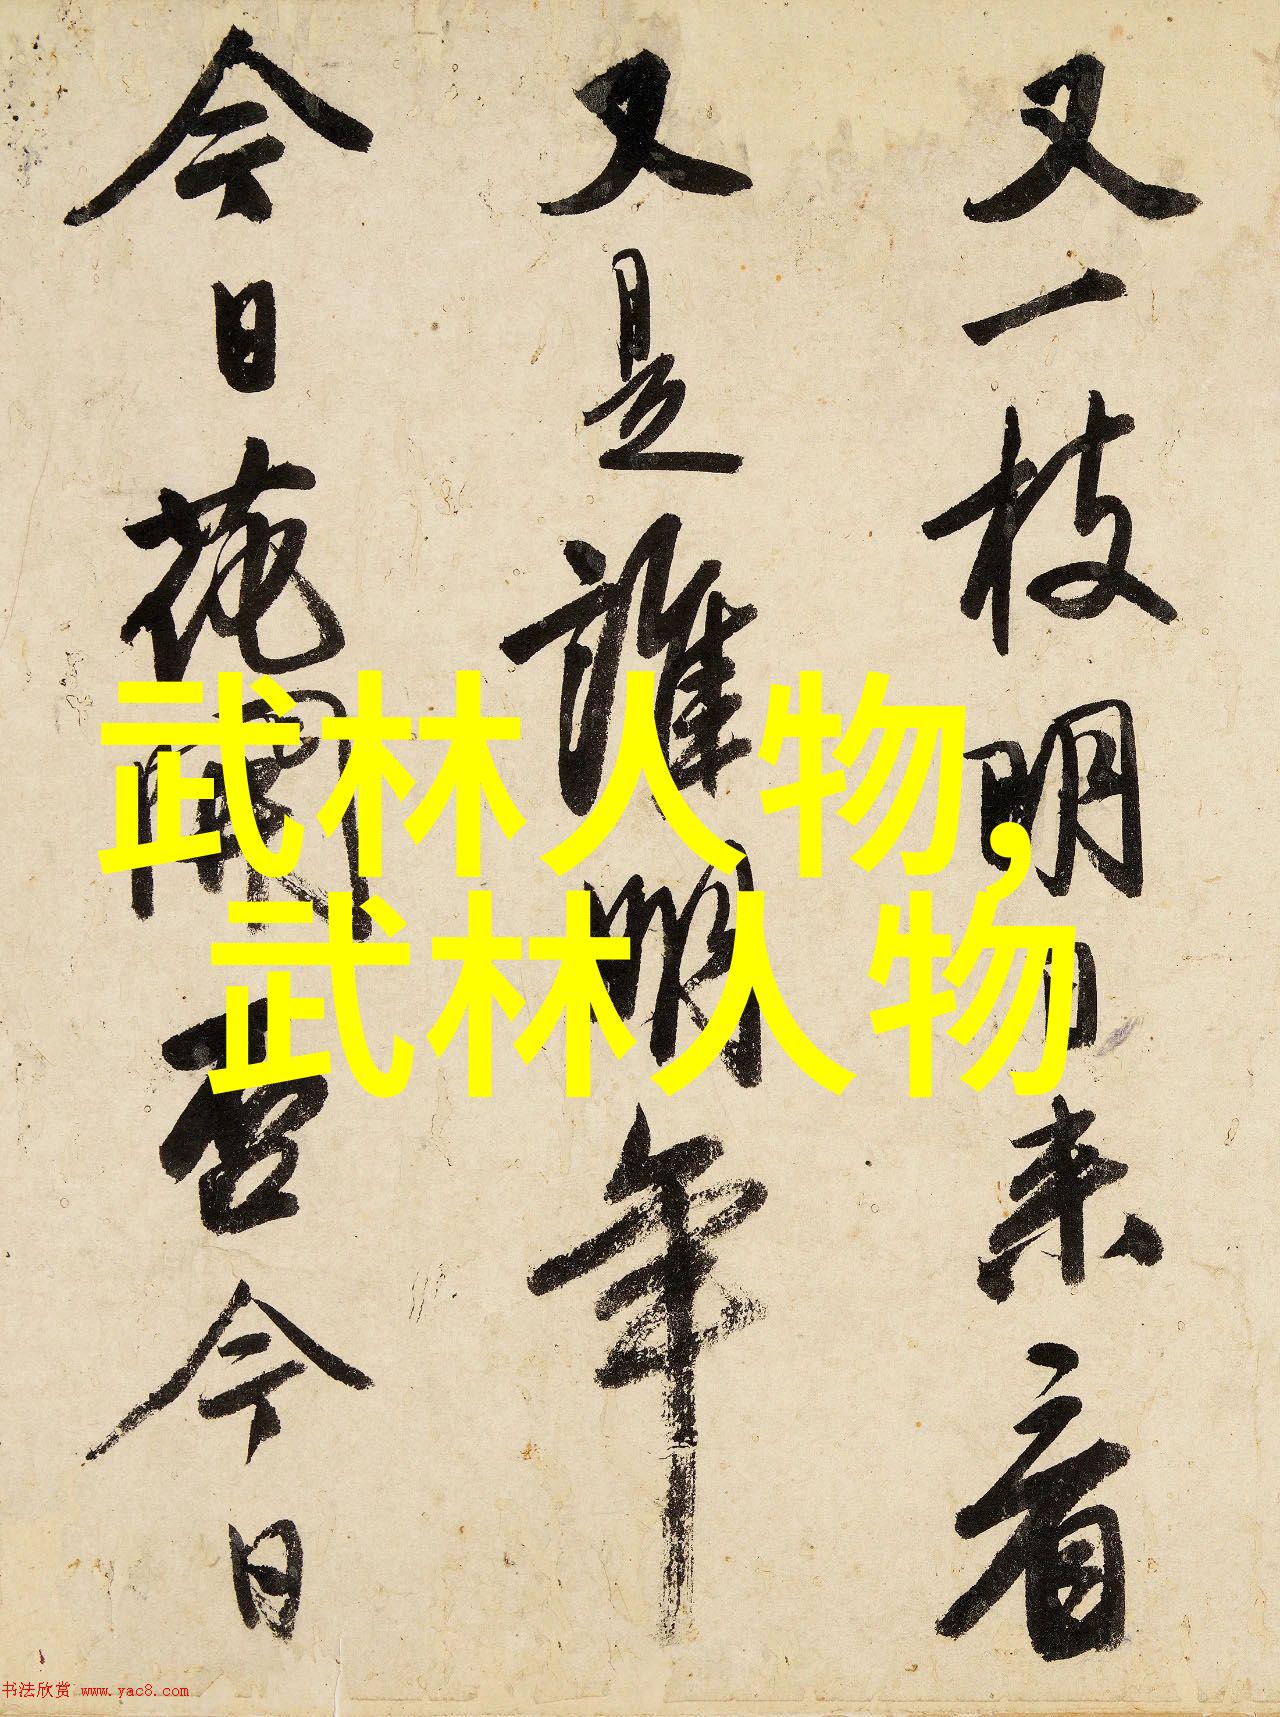 又一枝明日来看
又是誰明年
今日花開否今日
武林人物,
武林人物
书法欣赏 www.yac8.com